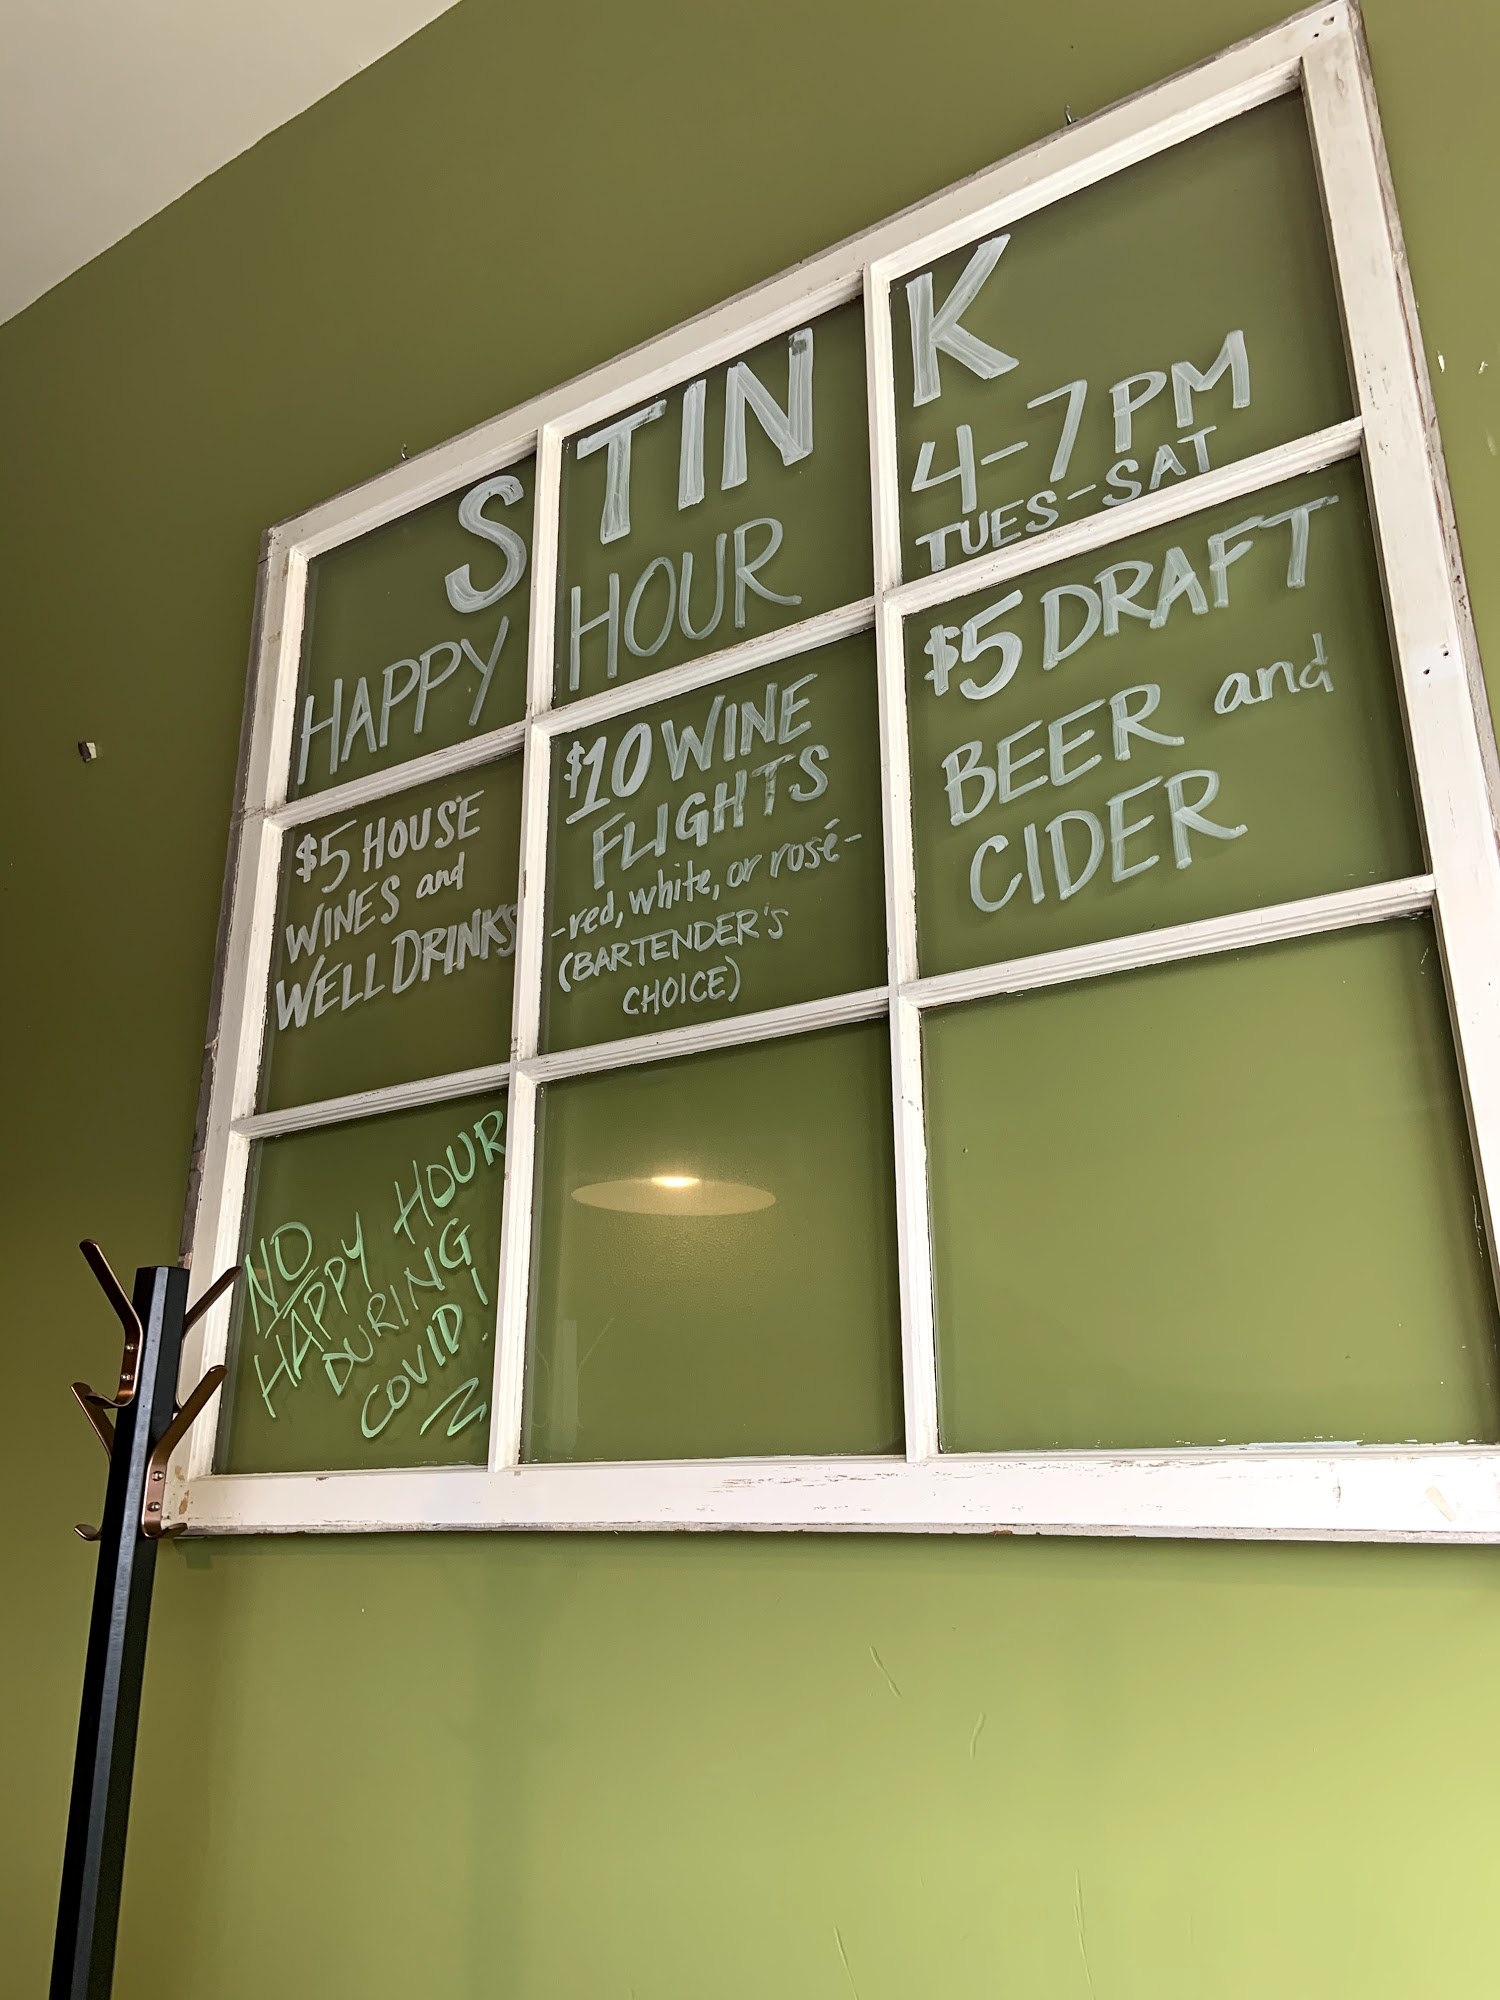 STINK
HAPPY HOUR
4-7PM
TUES-SAT
$5 HOUSE
WINES and
WELL DRINKS
$10 WINE
FLIGHTS
-red, white, or rosé-
(BARTENDER'S
CHOICE)
$5 DRAFT
BEER and
CIDER
NO
HAPPY HOUR
DURING
COVID!